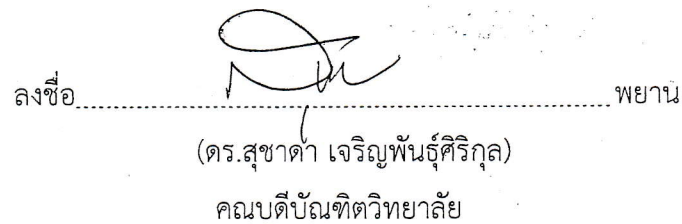 ลงชื่อ........................................พยาน
(ดร.สุชาดา เจริญพันธุ์ศิริกุล)
คณบดีบัณฑิตวิทยาลัย